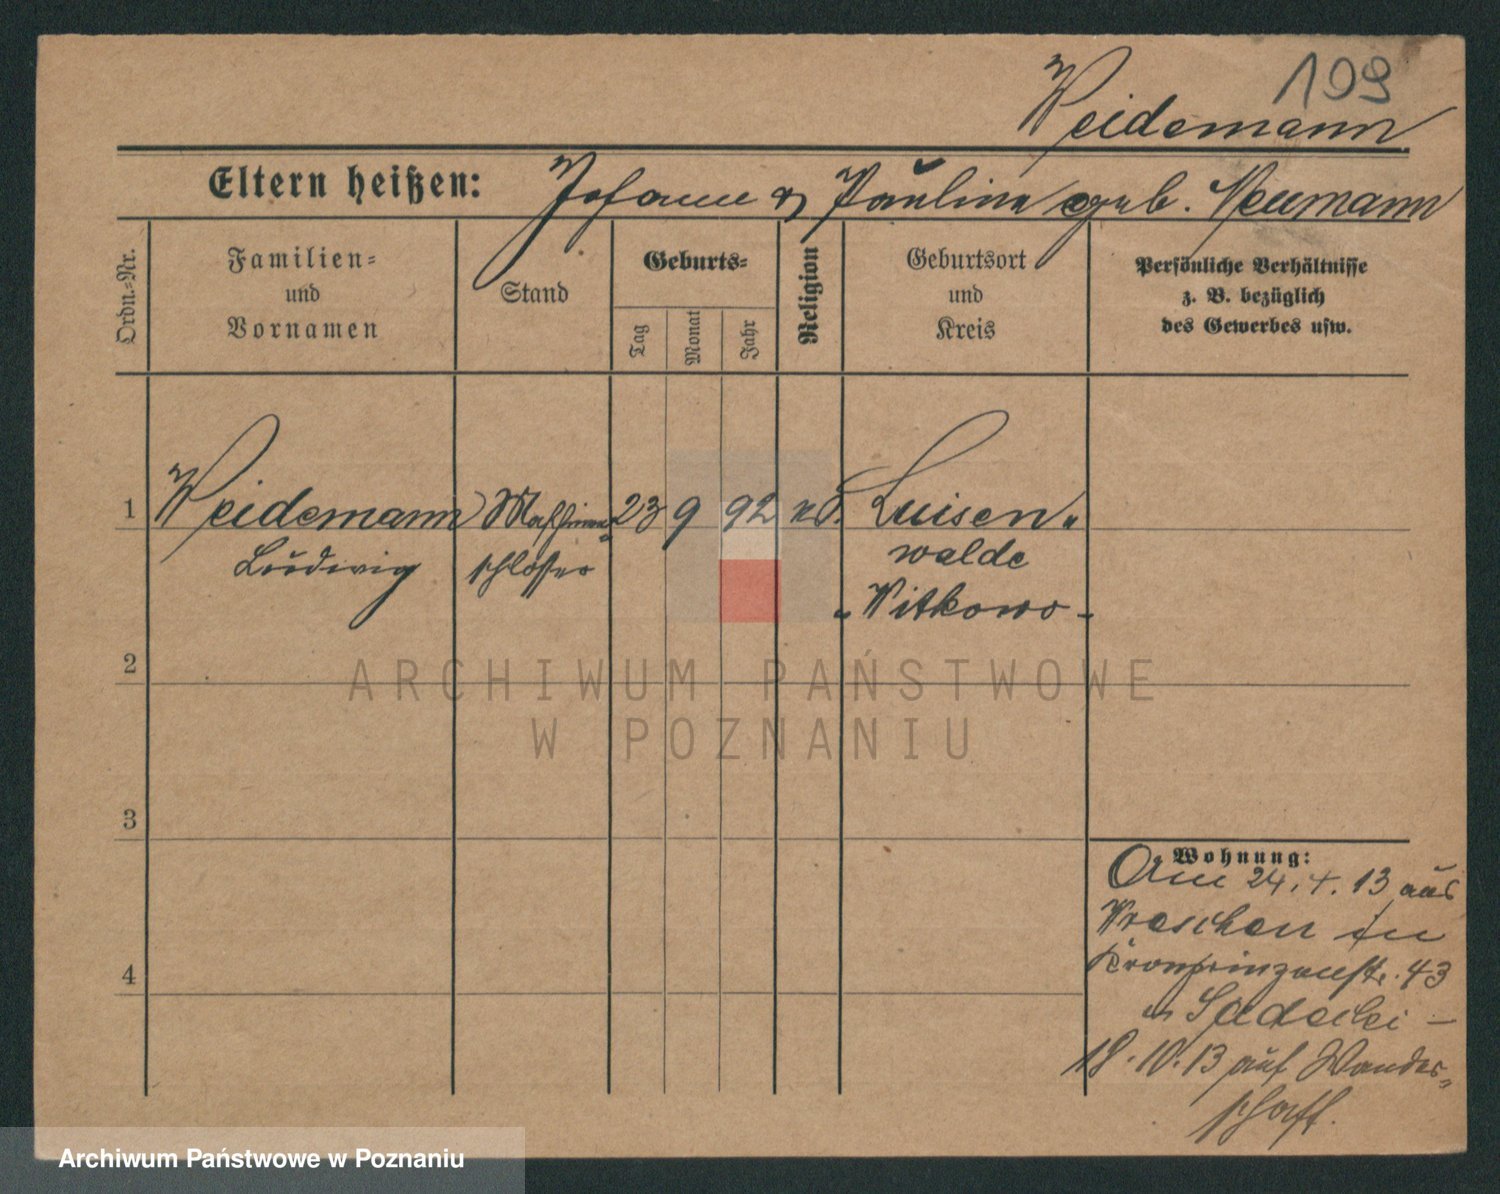 109
Weidemann
Eltern heißen: Johann & Pauline geb. Neumann
Ordn.-Nr.
Familien-
und
Vornamen
Stand
Geburts-
Tag
Monat
Jahr
Religion
Geburtsort
und
Kreis
Persönliche Verhältnisse
z. B. bezüglich
des Gewerbes usw.
1 Weidemann Maschinen- 23 9 92 Luisen-
Ludwig schlosser walde
Witkowo
2
3
4
Wohnung:
Am 24.4.13 aus
Wreschen in
Kronprinzenstr. 43
Sadecki
18.10.13 auf Wander-
schaft.
ARCHIWUM PAŃSTWOWE
W POZNANIU
Archiwum Państwowe w Poznaniu